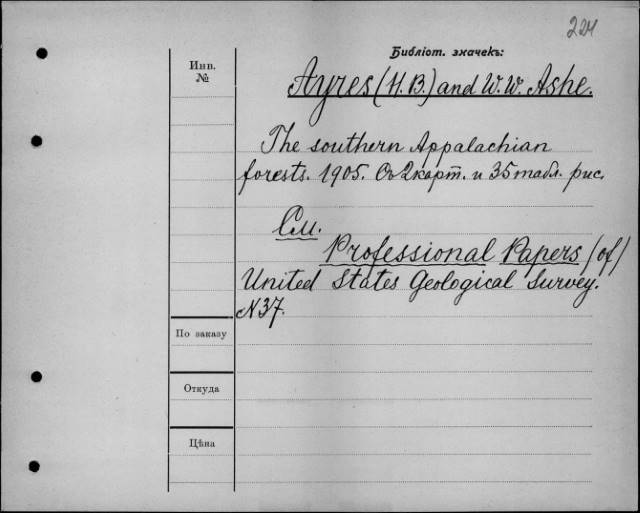 224
Библіот. значекъ:
Инв.
№
Ayres (H. B.) and W. W. Ashe.
The southern Appalachian
forests. 1905. Съ 2 карт. и 35 табл. рис.
См.
Professional Papers (of)
United States Geological Survey.
N 37.
По заказу
Откуда
Цѣна